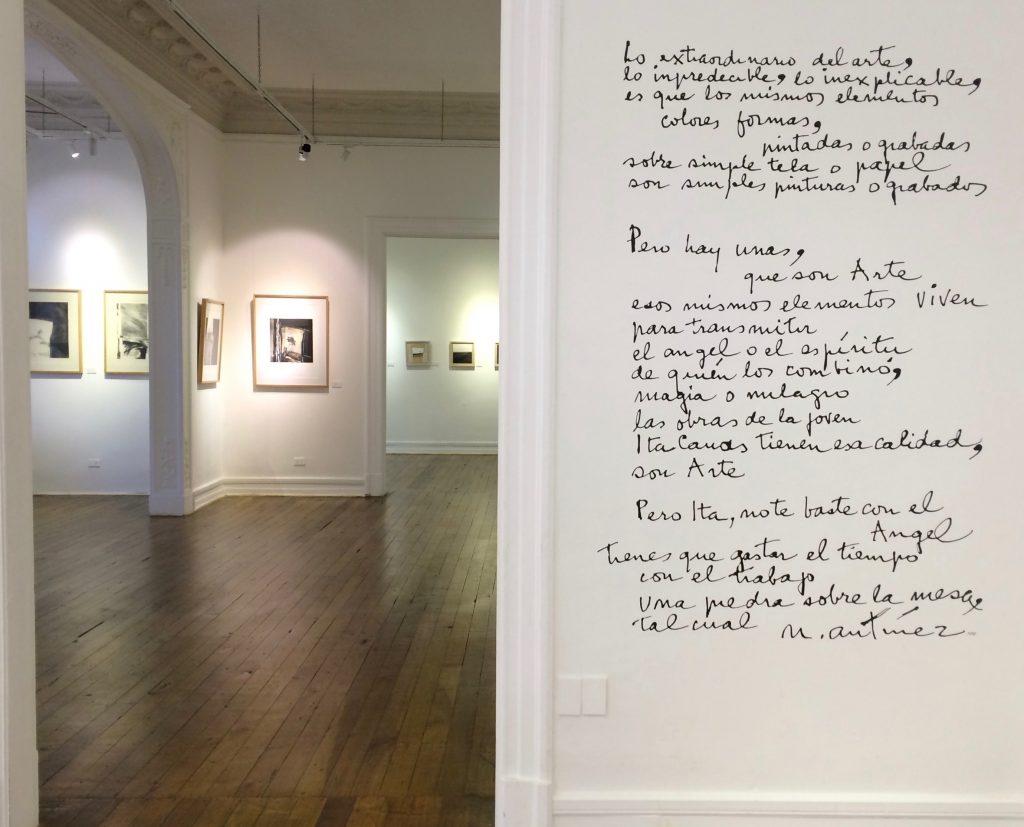 Lo extraordinario del arte,
lo inpredecible, lo inexplicable,
es que los mismos elementos
colores formas,
pintadas o grabadas
sobre simple tela o papel
son simples pinturas o grabados
Pero hay unas,
que son Arte
esos mismos elementos viven
para transmitir
el angel o el espíritu
de quién los combinó,
magia o milagro
las obras de la joven
Ita Canas tienen esa calidad,
son Arte
Pero Ita, no te baste con el
Angel
tienes que gastar el tiempo
con el trabajo
una piedra sobre la mesa,
tal cual n. antúnez